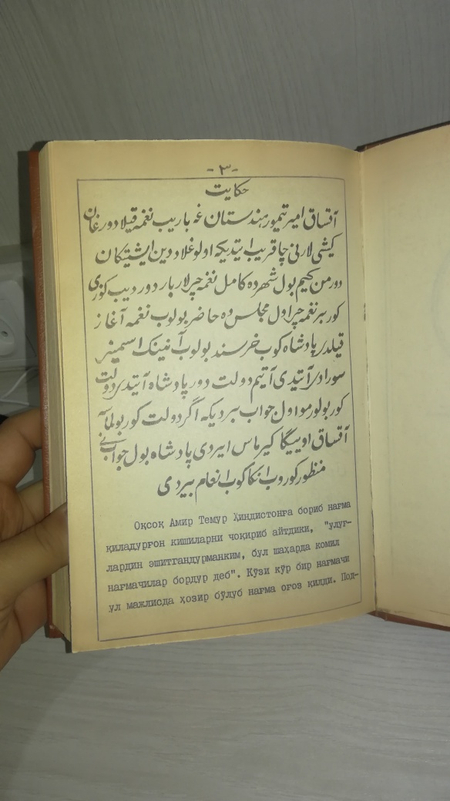 -٣-
حکایت
آقساق امیر تیمور هندستان غه باریب نغمه قیلادورغان
کیشی لارنی چاقریب ایتدیکه اولوغلاردین ایشیتکان
دورمن کیم بول شهرده کامل نغمه چیلار بار دور دیب کوزی
کور بر نغمه چی اول مجلس ده حاضر بولوب نغمه آغاز
قیلدی پادشاه کوب خرسند بولوب آنینک اسمینی
سورادی آیتدی آتیم دولت دور پادشاه آیتدی دولت
کور بولورمو اول جواب بیردیکه اگر دولت کور بولماسه
آقساق اوییگا کیرماس ایردی پادشاه بول جوابنی
منظور کوروب انکا کوب انعام بیردی
Оқсоқ Амир Темур Ҳиндистонға бориб нағма
қиладурғон кишиларни чоқириб айтдики, "улуғ-
лардин эшитгандурманким, бул шаҳарда комил
нағмачилар бордур деб". Кўзи кўр бир нағмачи
ул маклисда ҳозир бўлуб нағма оғоз қилди. Под-